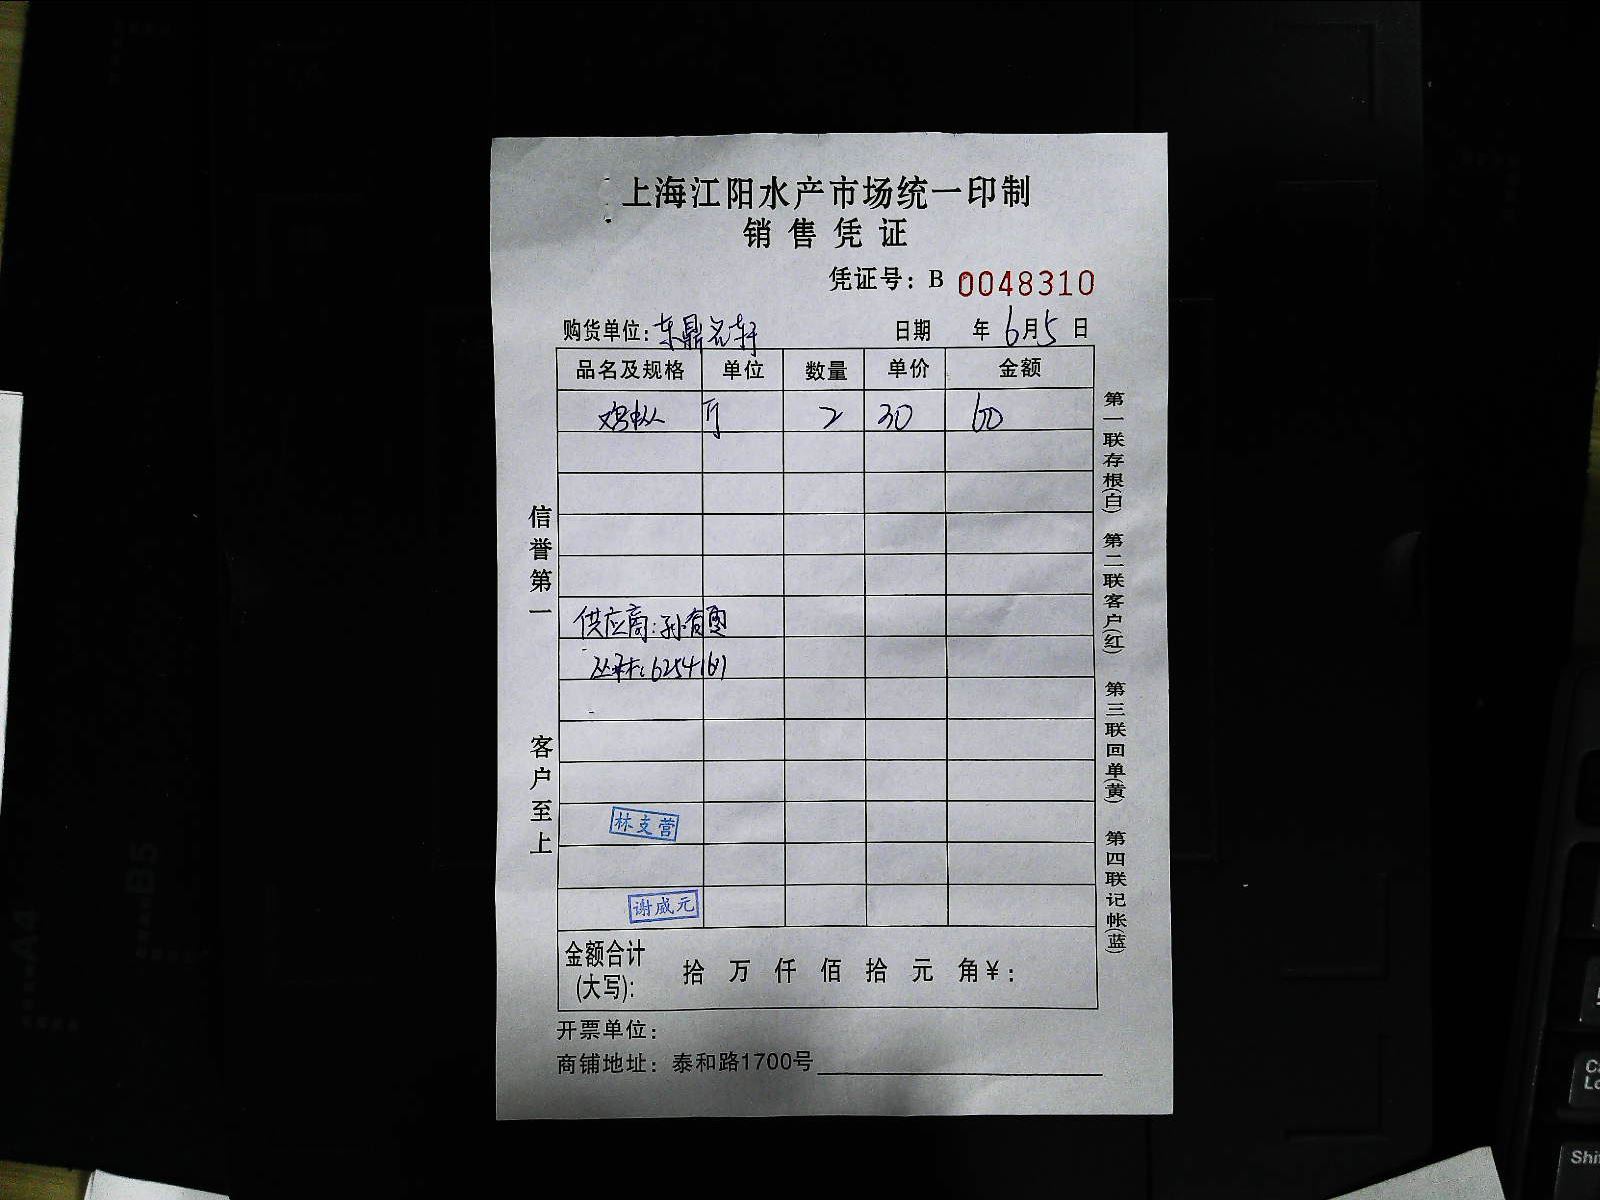 上海江阳水产市场统一印制
销售凭证
凭证号：B 0048310
购货单位：东鼎名轩 日期 年6月5日
品名及规格 单位 数量 单价 金额
斤 2 30 60
供应商：孙
6254161
林支营
谢威元
金额合计
(大写)： 拾 万 仟 佰 拾 元 角￥：
开票单位：
商铺地址：泰和路1700号
信誉第一 客户至上
第一联存根(白) 第二联客户(红) 第三联回单(黄) 第四联记帐(蓝)
A4
B5
Shi